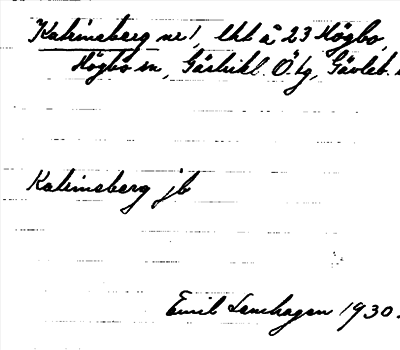 Katrineberg nr 1, lht å 23 Högbo,
Högbo sn, Gästrikl. Ö. tg, Gävleb. l
Katrineberg jb
Emil Lenhagen 1930.